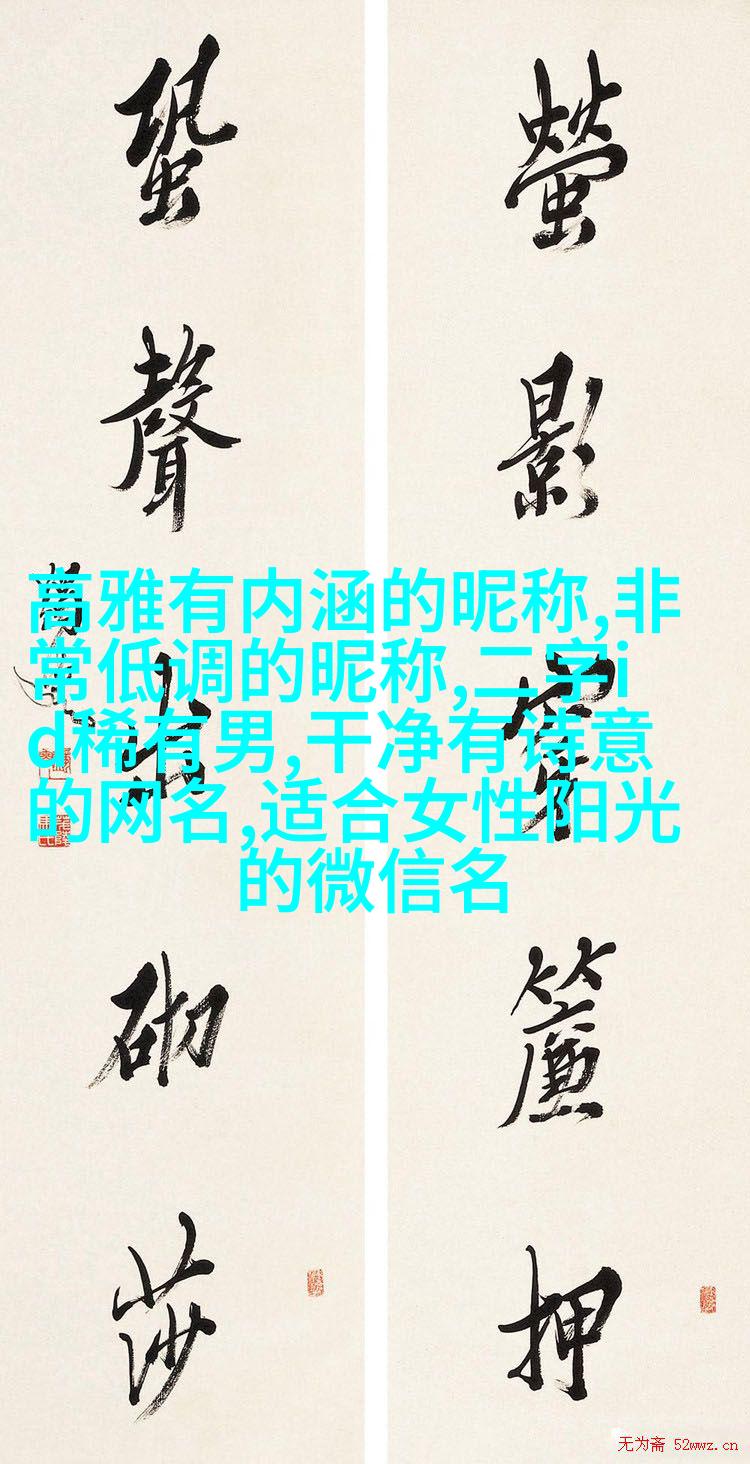 螢影穿簾押
蛩聲出砌莎
高雅有内涵的昵称,非
常低调的昵称,二字i
d稀有男,干净有诗意
的网名,适合女性阳光
的微信名
无为斋 52wwz.cn